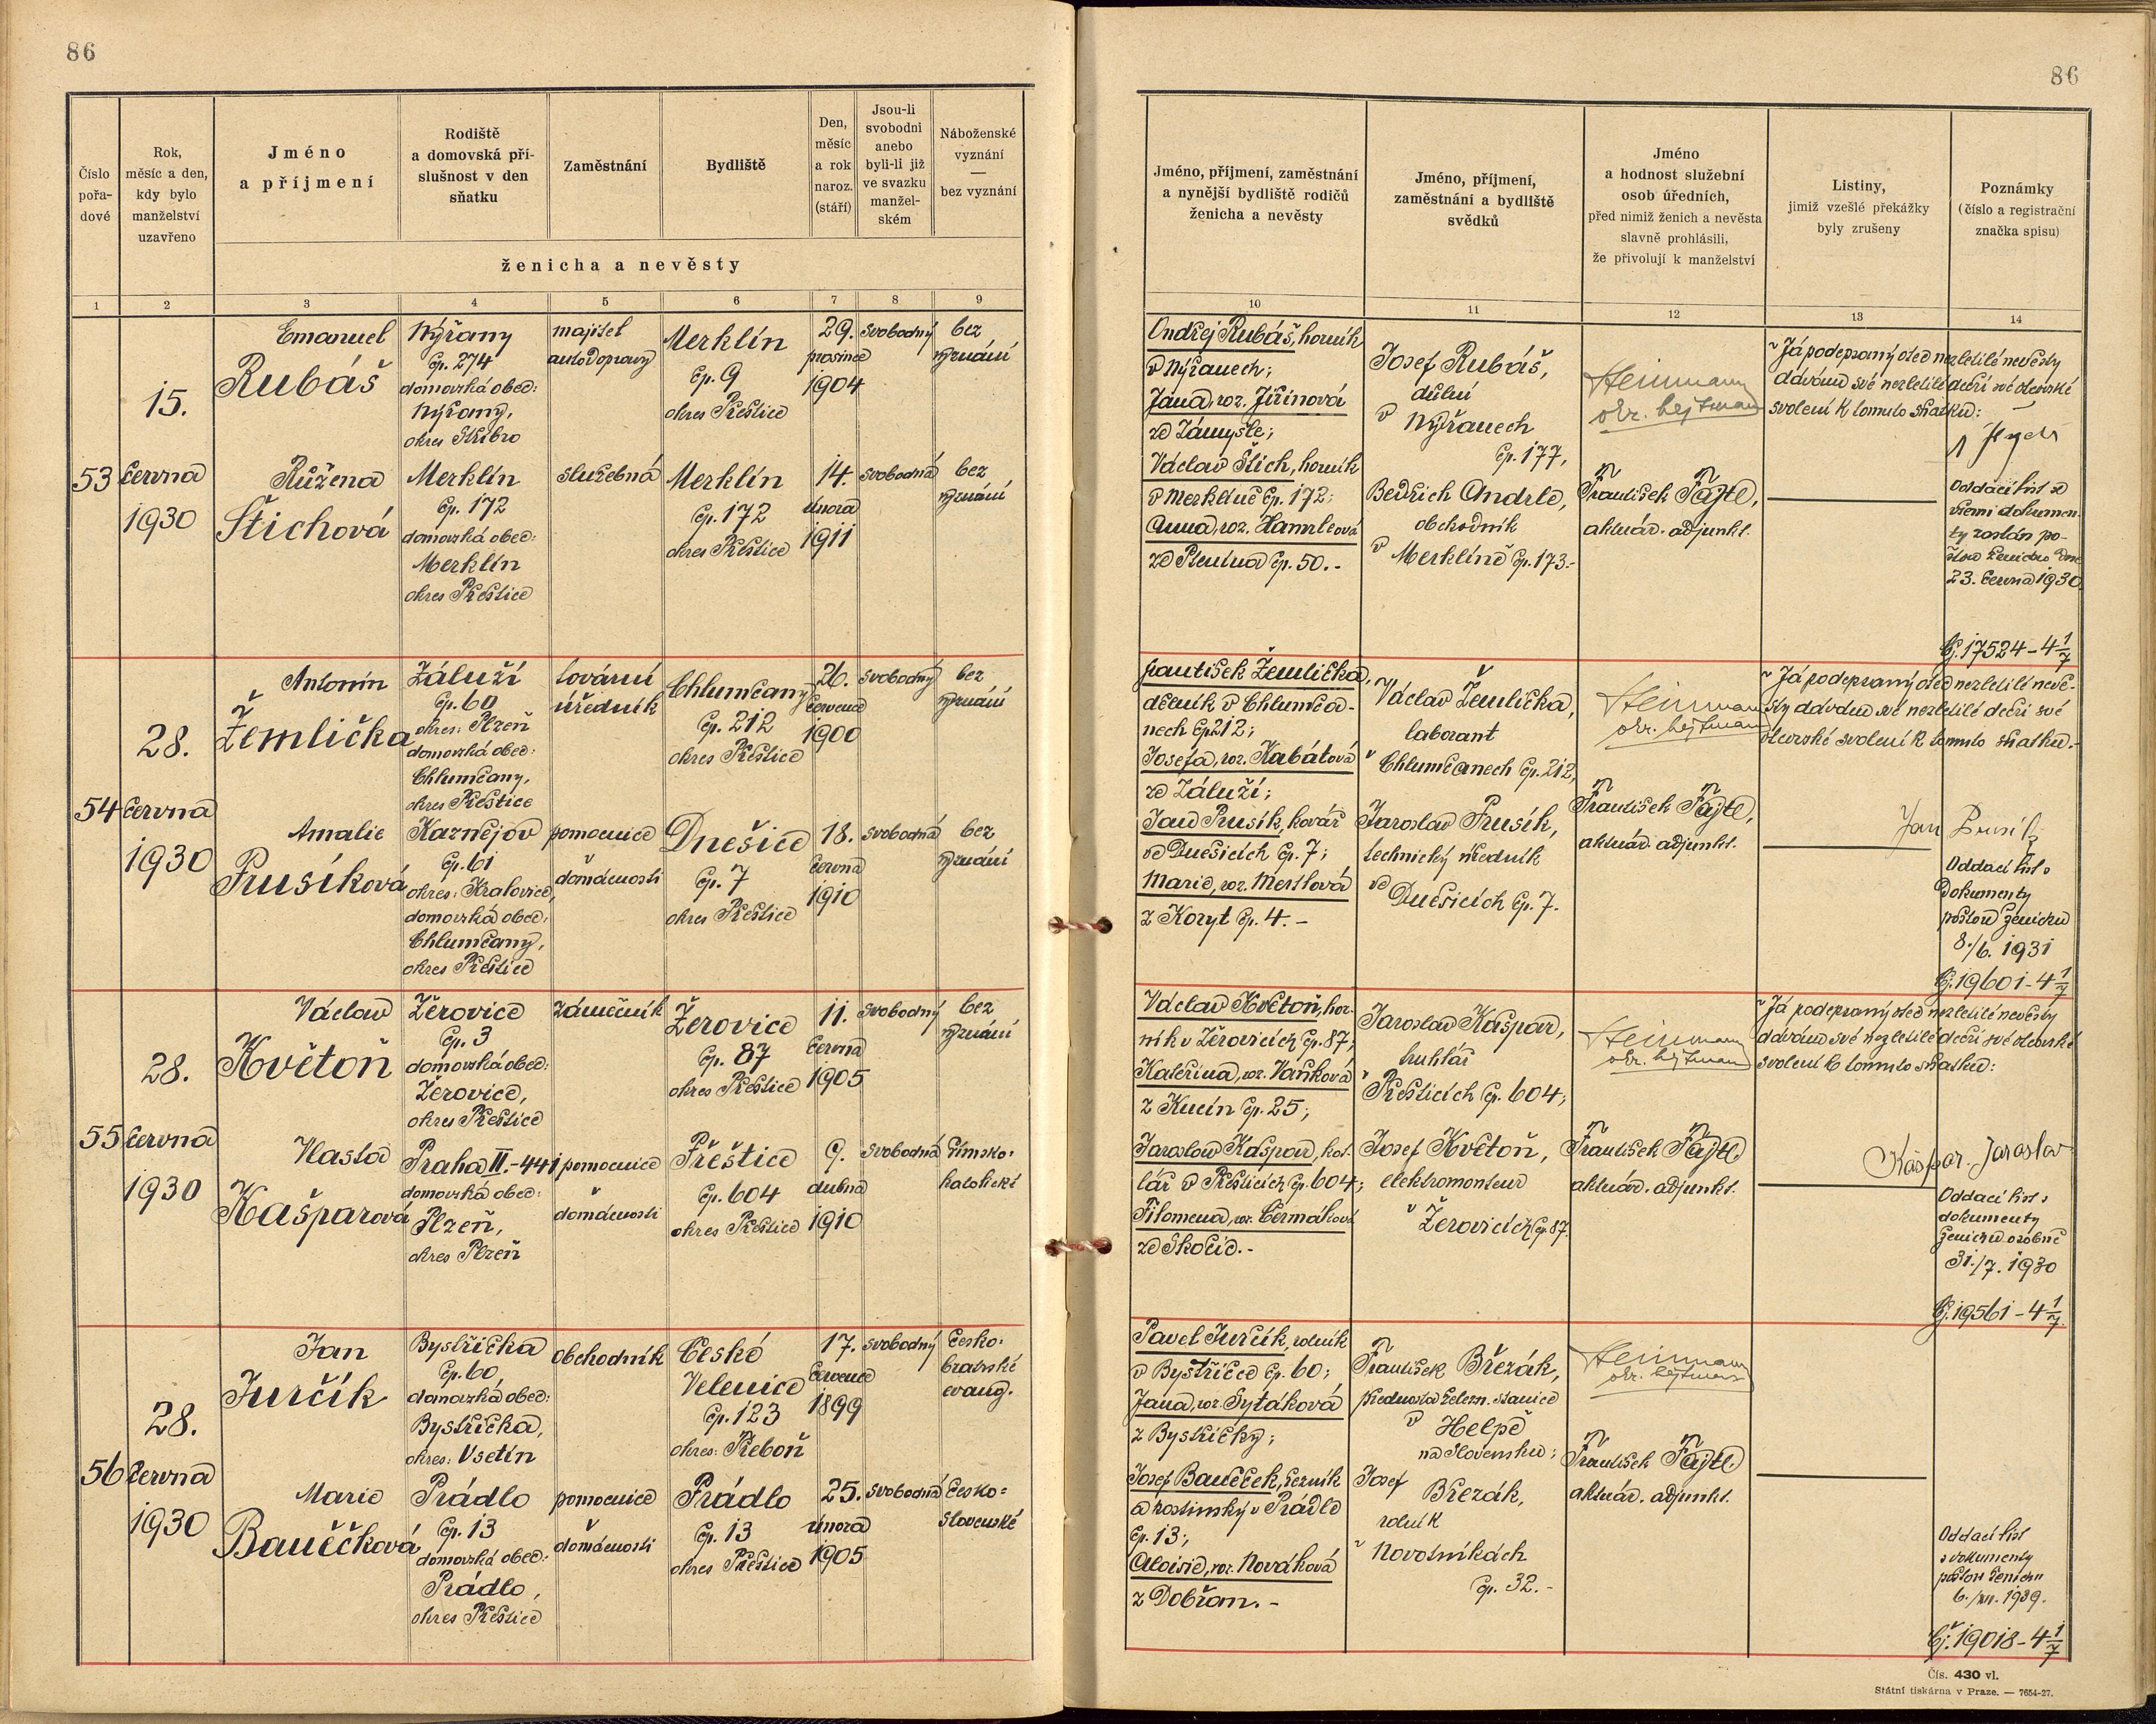 86
Číslo pořa-dové
Rok, měsíc a den, kdy bylo manželství uzavřeno
Jméno a příjmení
Rodiště a domovská pří-slušnost v den sňatku
Zaměstnání
Bydliště
Den, měsíc a rok naroz. (stáří)
Jsou-li svobodni anebo byli-li již ve svazku manžel-ském
Náboženské vyznání — bez vyznání
ženicha a nevěsty
1 2 3 4 5 6 7 8 9
53
15.
června
1930
Emanuel
Rubáš
Nýřany
čp. 274
domovská obec:
Nýřany,
okres Stříbro
majitel
autodopravy
Merklín
čp. 9
okres Přeštice
29.
prosince
1904
svobodný
bez
vyznání
Růžena
Štichová
Merklín
čp. 172
domovská obec:
Merklín
okres Přeštice
služebná
Merklín
čp. 172
okres Přeštice
14.
února
1911
svobodná
bez
vyznání
54
28.
června
1930
Antonín
Žemlička
Záluží
čp. 60
okres: Plzeň
domovská obec:
Chlumčany,
okres Přeštice
tovární
úředník
Chlumčany
čp. 212
okres Přeštice
26.
července
1900
svobodný
bez
vyznání
Amalie
Prusíková
Kaznějov
čp. 61
okres: Kralovice,
domovská obec:
Chlumčany,
okres Přeštice
pomocnice
v
domácnosti
Dnešice
čp. 7
okres Přeštice
18.
června
1910
svobodná
bez
vyznání
55
28.
června
1930
Václav
Květoň
Žerovice
čp. 3
domovská obec:
Žerovice,
okres Přeštice
zámečník
Žerovice
čp. 87
okres Přeštice
11.
června
1905
svobodný
bez
vyznání
Vlasta
Kašparová
Praha II.-441
domovská obec:
Plzeň,
okres Plzeň
pomocnice
v
domácnosti
Přeštice
čp. 604
okres Přeštice
9.
dubna
1910
svobodná
římsko-
katolické
56
28.
června
1930
Jan
Jurčík
Bystřička
čp. 60,
domovská obec:
Bystřička,
okres: Vsetín
obchodník
České
Velenice
čp. 123
okres: Třeboň
17.
července
1899
svobodný
česko-
bratrské
evang.
Marie
Baněčková
Prádlo
čp. 13
domovská obec:
Prádlo,
okres Přeštice
pomocnice
v
domácnosti
Prádlo
čp. 13
okres Přeštice
25.
února
1905
svobodná
česko-
slovenské
86
Jméno, příjmení, zaměstnání a nynější bydliště rodičů ženicha a nevěsty
Jméno, příjmení, zaměstnání a bydliště svědků
Jméno a hodnost služební osob úředních, před nimiž ženich a nevěsta slavně prohlásili, že přivolují k manželství
Listiny, jimiž vzešlé překážky byly zrušeny
Poznámky (číslo a registrační značka spisu)
10 11 12 13 14
Ondřej Rubáš, horník
v Nýřanech;
Jana, roz. Jiřinová
ze Zámyšle;
Václav Štich, horník
v Merklíně čp. 172;
Anna, roz. Hamrleová
ze Ptenína čp. 50.-
Josef Rubáš,
důlní
v Nýřanech
čp. 177,
Bedřich Andrle,
obchodník
v Merklíně čp. 173.-
Heinmann
okr. hejtman
František Fajtl,
aktuár. adjunkt.
Já podepsaný otec nezletilé nevěsty
dávám své nezletilé dceři své otcovské
svolení k tomuto sňatku:
Oddací list se
všemi dokumen-
ty zaslán po-
štou ženichu dne
23. června 1930
Čj. 17524-4 1/7
František Žemlička,
dělník v Chlumča-
nech čp 212;
Josefa, roz. Kabátová
ze Záluží;
Jan Prusík, kovář
ve Dnešicích čp. 7;
Marie, roz. Mertlová
z Koryt čp. 4.-
Václav Žemlička,
laborant
v Chlumčanech čp. 212,
Jaroslav Prusík,
technický úředník
ve
Dnešicích čp. 7.
Heinmann
okr. hejtman
František Fajtl,
aktuár. adjunkt.
Já podepsaný otec nezletilé nevě-
sty dávám své nezletilé dceři své
otcovské svolení k tomuto sňatku.-
Jan Prusík
Oddací list s
dokumenty
poštou ženichu
8./6. 1931
Čj. 19601-4 1/7
Václav Květoň, hor-
ník v Žerovicích čp. 87;
Kateřina, roz. Vaňková
z Kucín čp. 25;
Jaroslav Kašpar, kot-
lář v Přešticích čp. 604;
Filomena, roz. Čermáková
ze Skočic.-
Jaroslav Kašpar,
truhlář
v Přešticích čp. 604;
Josef Květoň,
elektromonteur
v Žerovicích čp. 87.
Heinmann
okr. hejtman
František Fajtl
aktuár. adjunkt.
Já podepsaný otec nezletilé nevěsty
dávám své nezletilé dceři své otcovské
svolení k tomuto sňatku:
Kašpar Jaroslav
Oddací list s
dokumenty
ženichu osobně
31./7. 1930
Čj. 19561-4 1/7
Pavel Jurčík, rolník
v Bystřičce čp. 60;
Jana, roz. Sytáková
z Bystřičky;
Josef Baněček, řezník
a hostinský v Prádle
čp. 13;
Aloisie, roz. Nováková
z Dobřan.-
František Březák,
přednosta železn. stanice
v Helpě
na Slovensku;
Josef
Březák,
rolník
v Novotníkách
čp. 32.-
Heinmann
okr. hejtman
František Fajtl
aktuár. adjunkt.
Oddací list
s dokumenty
poštou ženichu
6./XII. 1939.
Čj. 19018-4 1/7
Čís. 430 vl.
Státní tiskárna v Praze. — 7654-27.